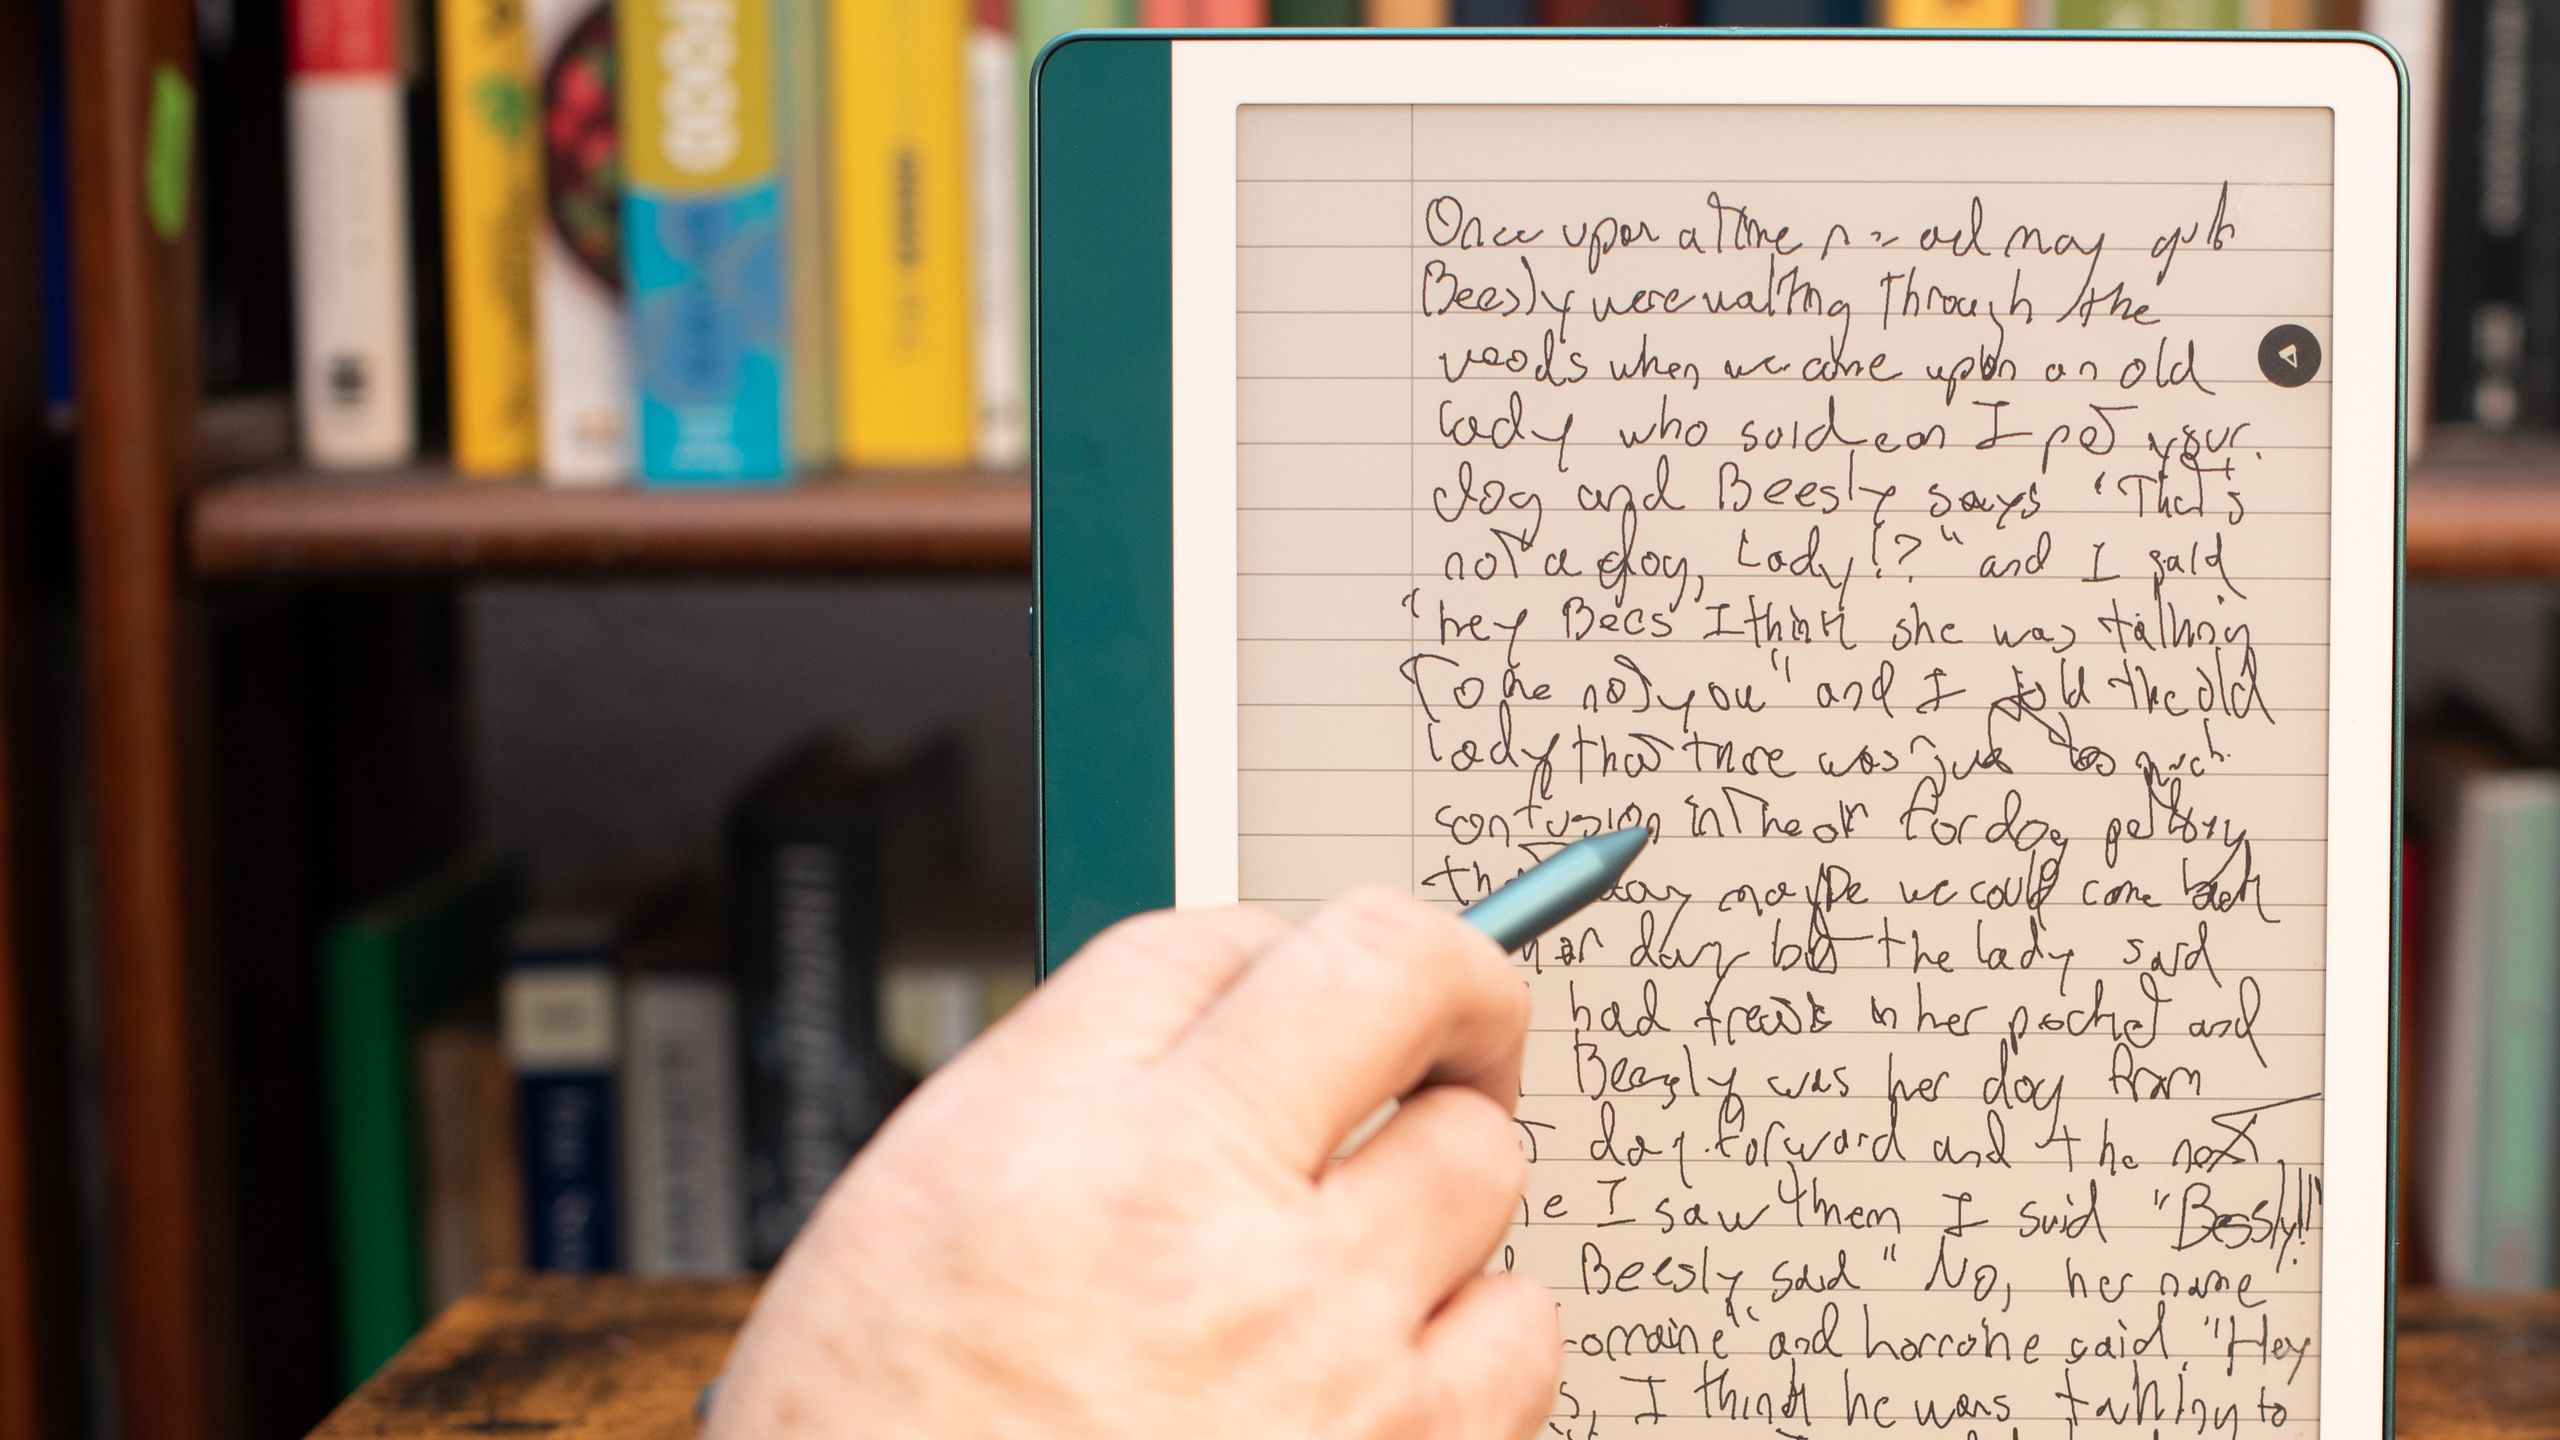 Once upon a time and my gulb
Beesly were walking through the
woods when we came upon an old
lady who said can I pet your
dog and Beesly says "That's
not a dog, Lady!?" and I said
"hey Bees I think she was talking
to me not you" and I told the old
lady that there was just too much
confusion in the air for dog petting
day maybe we could come back
day but the lady said
had treats in her pocket and
Beesly was her dog from
day forward and the next
I saw them I said "Beesly!!!"
Beesly said "No, her name
Lorraine" and Lorraine said "Hey
I think he was talking to